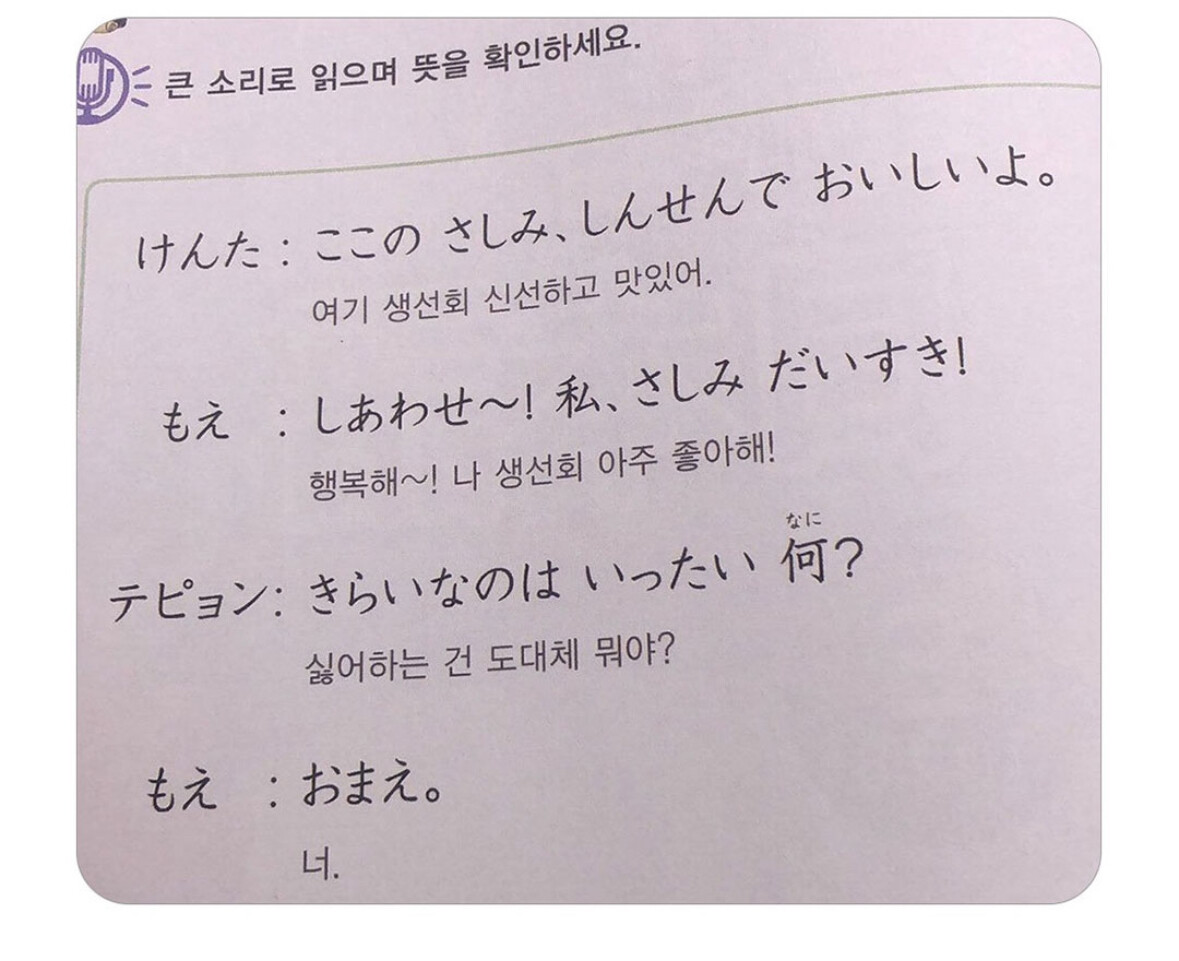 큰 소리로 읽으며 뜻을 확인하세요.
けんた : ここの さしみ、しんせんで おいしいよ。
여기 생선회 신선하고 맛있어.
もえ : しあわせ〜! 私、さしみ だいすき!
행복해〜! 나 생선회 아주 좋아해!
なに
テピョン: きらいなのは いったい 何?
싫어하는 건 도대체 뭐야?
もえ : おまえ。
너.